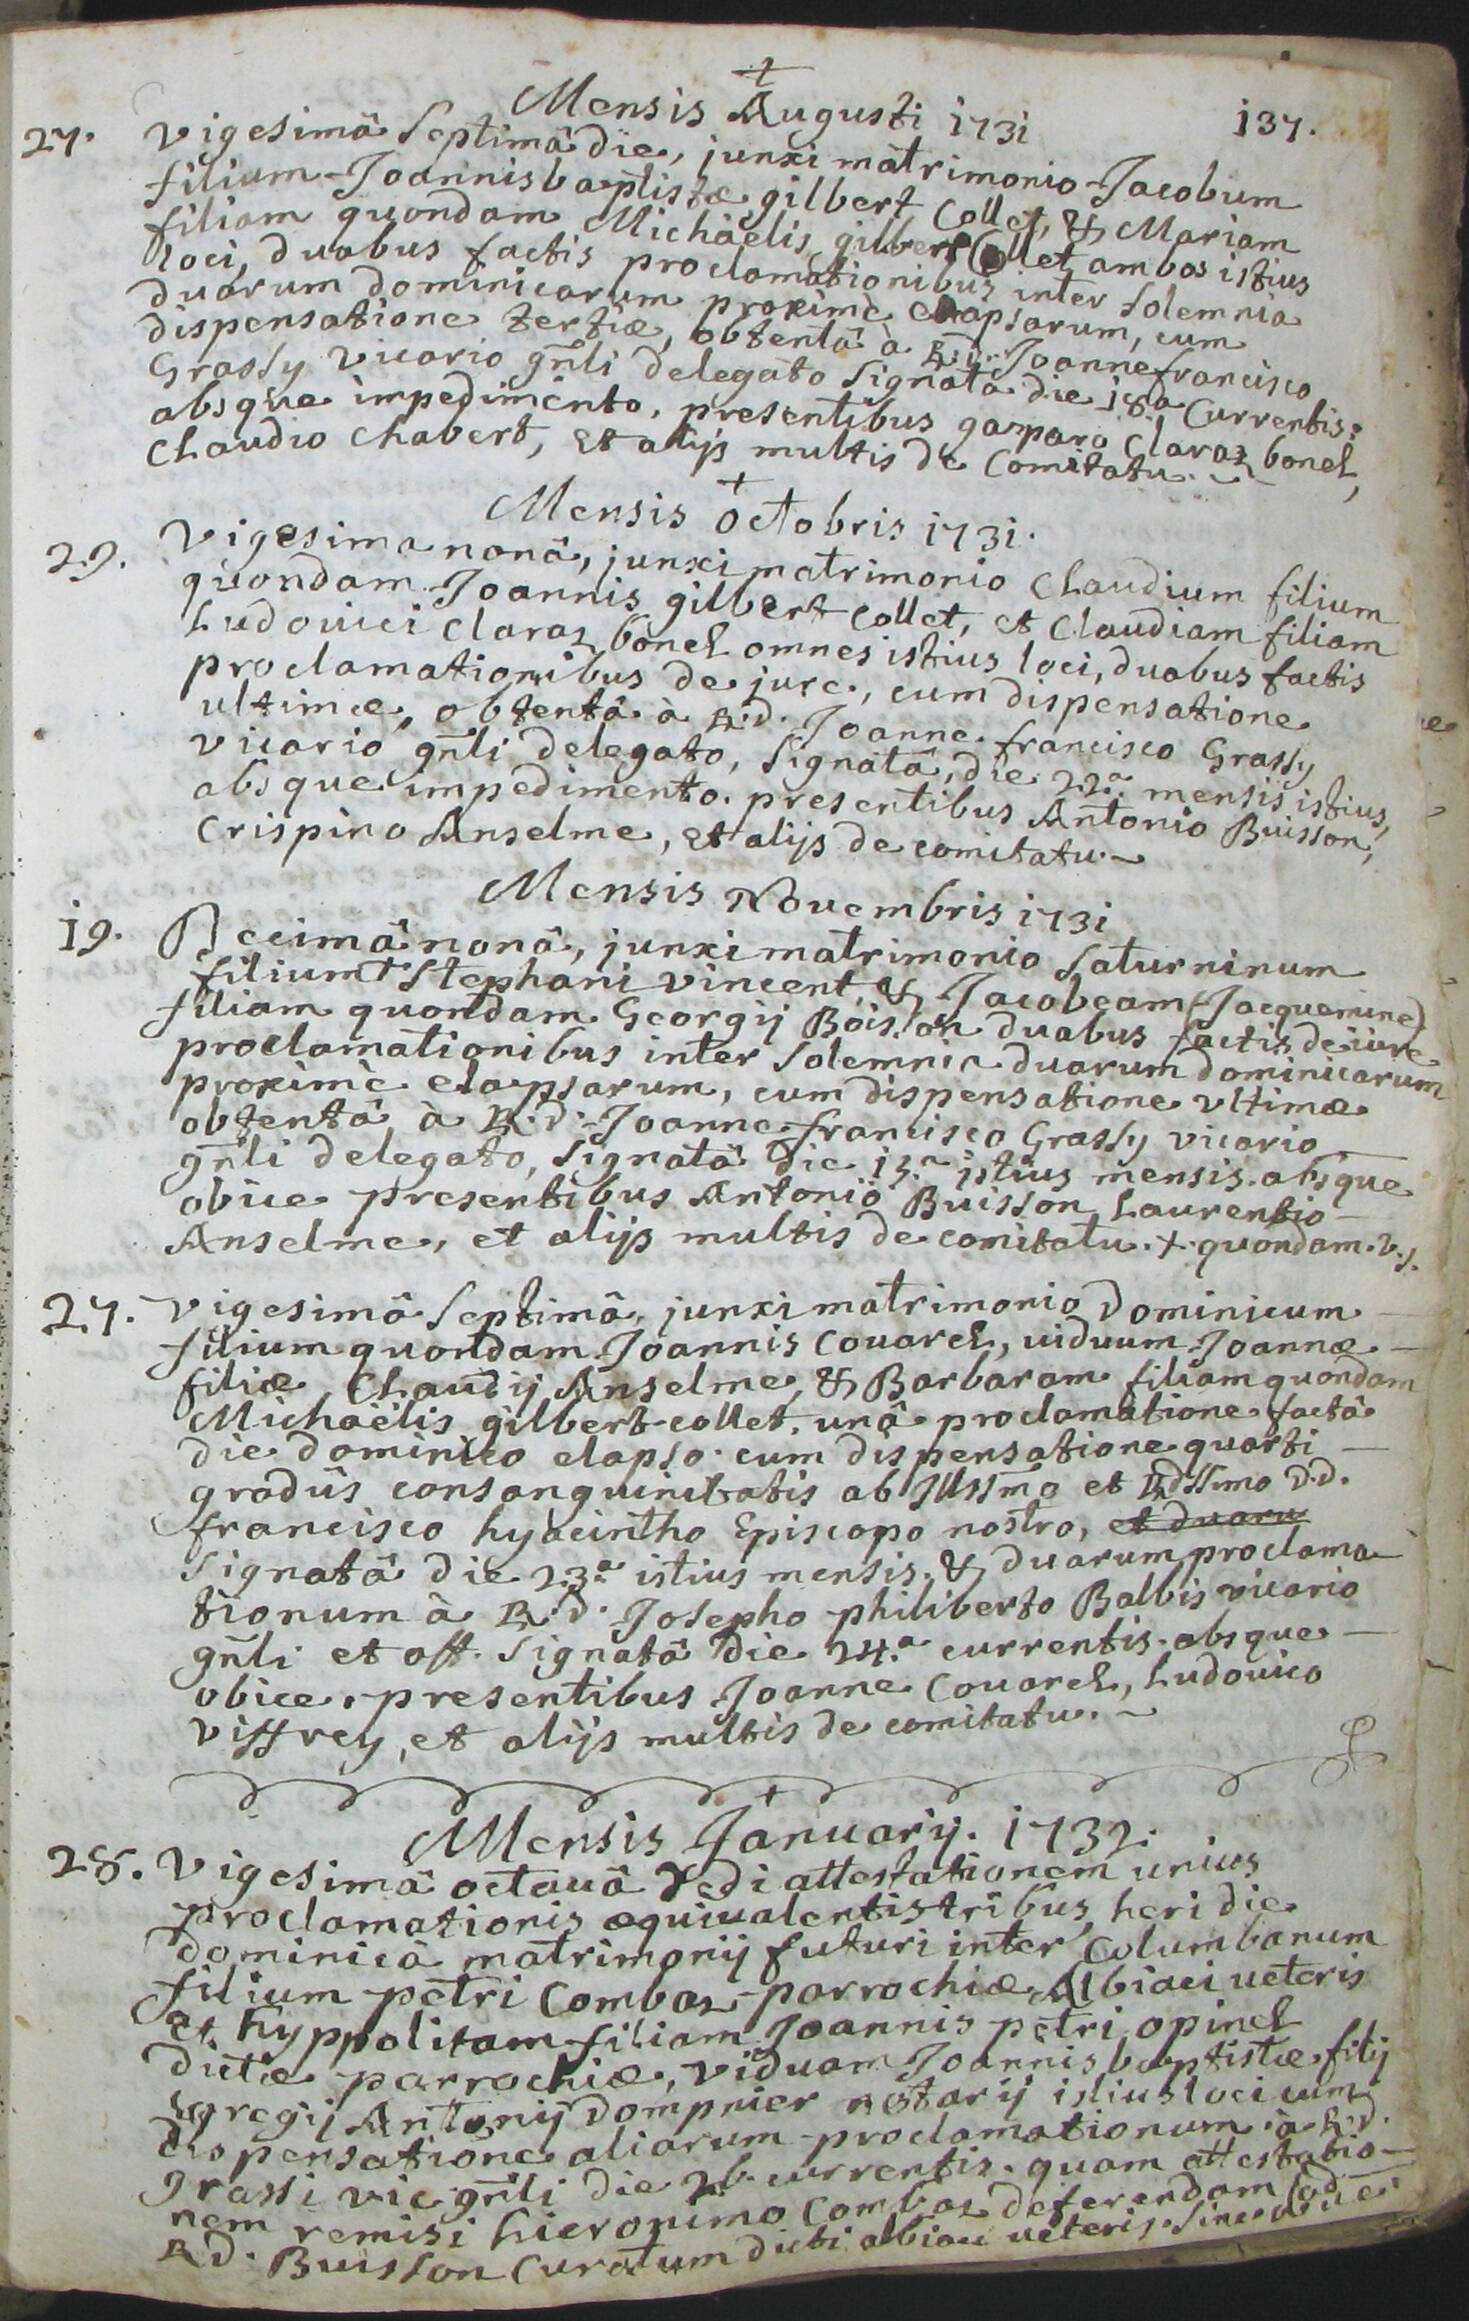 +
Mensis Augusti 1731
137.
27. vigesimâ Septimâ die, junxi matrimonio Jacobum
filium Joannisbaptistæ gilbert Collet, & Mariam
filiam quondam Michaëlis gilbert Collet, ambos istius
loci, duabus factis proclamationibus inter Solemnia
duarum dominicarum proximè elapsarum, cum
dispensatione tertiæ, obtentâ à R.d. Joannefrancisco
Grassy vicario gñli delegato signatâ die 18.a Currentis.
absque impedimento, presentibus gasparo Claraz bonel,
Claudio Chabert, et alijs multis de Comitatu.~
+
Mensis octobris 1731.
29. Vigesima nonâ, junxi matrimonio Claudium filium
quondam Joannis gilbert collet, et Claudiam filiam
Ludovici Claraz bonel omnes istius loci, duabus factis
proclamationibus de jure, cum dispensatione
ultimæ, obtentâ à R.d. Joanne francisco Grassy
vicario gñli delegato, signatâ, die 22.a mensis istius,
absque impedimento. presentibus Antonio Buisson,
Crispino Anselme, et alijs de comitatu.~
Mensis Novembris 1731
19. Decimâ nonâ, junxi matrimonio Saturninum
filium + Stephani vincent, & Jacobeam (Jacquemine)
filiam quondam Georgij Boisson duabus factis de iure
proclamationibus inter Solemnia duarum dominicarum
proximè elapsarum, cum dispensatione vltimæ
obtentâ à R.d. Joanne francisco Grassy vicario
gñli delegato, signatâ die 13.a istius mensis. absque
obice presentibus Antonio Buisson Laurentio
Anselme, et alijs multis de comitatu. +. quondam.
27. vigesimâ Septimâ, junxi matrimonio dominicum
filium quondam Joannis Couarel, uiduum Joannæ
filiæ Claudij Anselme, & Barbaram filiam quondam
Michaëlis gilbert-collet, unâ proclamatione factâ
die dominico elapso. cum dispensatione quarti
gradûs consanguinitatis ab Illssm̃o et Rdssimo D.D.
francisco hyacintho Episcopo nostro, et duaru
signatâ die 23.a istius mensis. & duarum proclama-
tionum à R.d. Josepho philiberto Balbis vicario
gñli et off. signatâ die 24.a currentis. absque
obice. presentibus Joanne Couarel, Ludouico
viffrey, et alijs multis de comitatu.~
+
Mensis Januarij. 1732.
28. Vigesimâ octauâ dedi attestationem unius
proclamationis æquiualentis tribus, heri die
dominicâ matrimonij futuri inter Columbanum
filium petri Combaz parrochiæ Albiaci ueteris
et hyppolitam filiam Joannis petri opinel
dictæ parrochiæ, viduam Joannis baptistæ filij
egregij Antonij dompnier notarij istius loci cum
dispensatione aliarum proclamationum à R.d.
Grassi vic gñli die 26. currentis. quam attestatio-
nem remisi hieronimo Combaz deferendam ad
R.d. Buisson Curatum dicti albiaci ueteris.